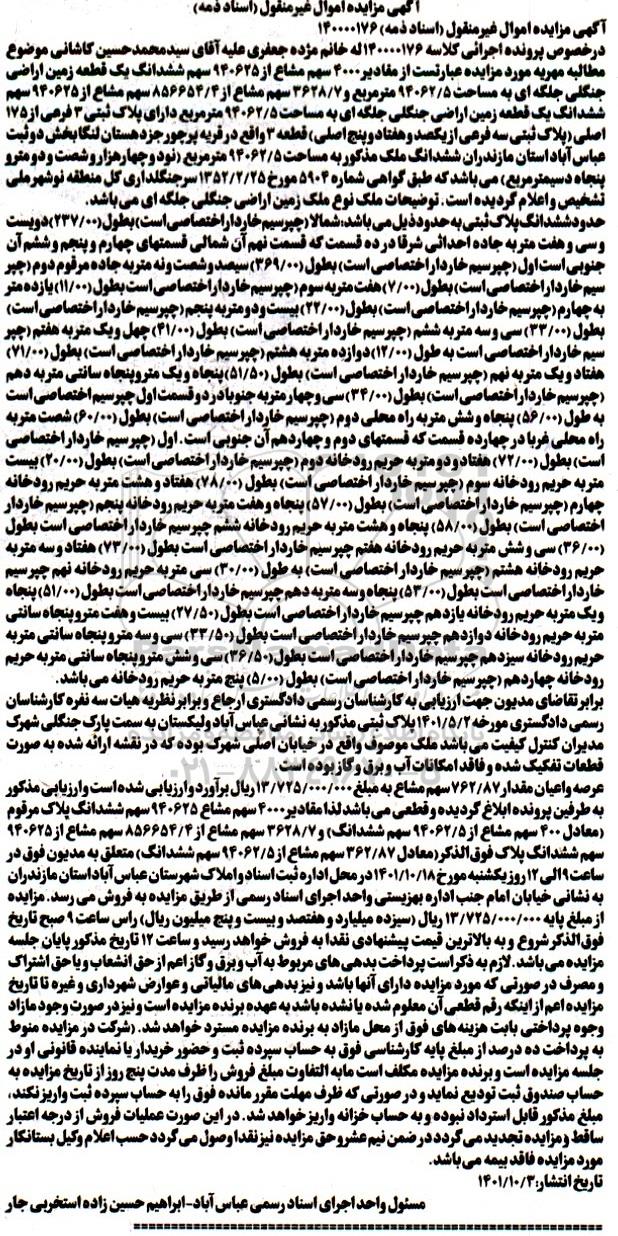 آگهی مزایده اموال غیرمنقول (اسناد ذمه)
آگهی مزایده اموال غیرمنقول (اسناد ذمه) ۱۴۰۰۰۰۱۷۶
درخصوص پرونده اجرائی کلاسه ۱۴۰۰۰۰۱۷۶ له خانم مژده جعفری علیه آقای سیدمحمدحسین کاشانی موضوع
مطالبه مهریه مورد مزایده عبارتست از مقادیر ۴۰۰۰ سهم مشاع از ۹۴۰۶۲۵ سهم ششدانگ یک قطعه زمین اراضی
جنگلی جلگه ای به مساحت ۹۴۰۶۲/۵ مترمربع و ۳۶۲۸/۷ سهم مشاع از ۸۵۶۶۵۴/۴ سهم مشاع از ۹۴۰۶۲۵ سهم
ششدانگ یک قطعه زمین اراضی جنگلی جلگه ای به مساحت ۹۴۰۶۲/۵ مترمربع دارای پلاک ثبتی ۳ فرعی از ۱۷۵
اصلی (پلاک ثبتی سه فرعی از یکصد و هفتاد و پنج اصلی) قطعه ۳ واقع در قریه پرجور جزدهستان لنگا بخش دو ثبت
عباس آباد استان مازندران ششدانگ ملک مذکور به مساحت ۹۴۰۶۲/۵ مترمربع (نود و چهار هزار و شصت و دو متر و
پنجاه دسیمترمربع) می باشد که طبق گواهی شماره ۵۹۰۴ مورخ ۱۳۵۲/۲/۲۵ سرجنگلداری کل منطقه نوشهر ملی
تشخیص و اعلام گردیده است. توضیحات ملک نوع ملک زمین اراضی جنگلی جلگه ای می باشد.
حدود ششدانگ پلاک ثبتی به حدود ذیل می باشد: شمالا (چپر سیم خاردار اختصاصی است) بطول (۲۳۷/۰۰) دویست
و سی و هفت متر به جاده احداثی شرقا در ده قسمت که قسمت نهم آن شمالی قسمتهای چهارم و پنجم و ششم آن
جنوبی است اول (چپر سیم خاردار اختصاصی است) بطول (۳۶۹/۰۰) سیصد و شصت و نه متر به جاده مرقوم دوم (چپر
سیم خاردار اختصاصی است) بطول (۷/۰۰) هفت متر به سوم (چپر سیم خاردار اختصاصی است) بطول (۱۱/۰۰) یازده متر
به چهارم (چپر سیم خاردار اختصاصی است) بطول (۲۲/۰۰) بیست و دو متر به پنجم (چپر سیم خاردار اختصاصی است)
بطول (۳۳/۰۰) سی و سه متر به ششم (چپر سیم خاردار اختصاصی است) بطول (۴۱/۰۰) چهل و یک متر به هفتم (چپر
سیم خاردار اختصاصی است به طول (۱۲/۰۰) دوازده متر به هشتم (چپر سیم خاردار اختصاصی است) بطول (۷۱/۰۰)
هفتاد و یک متر به نهم (چپر سیم خاردار اختصاصی است) بطول (۵۱/۵۰) پنجاه و یک متر و پنجاه سانتی متر به دهم
(چپر سیم خاردار اختصاصی است) بطول (۳۴/۰۰) سی و چهار متر به جنوبا در دو قسمت اول چپر سیم اختصاصی است
به طول (۵۶/۰۰) پنجاه و شش متر به راه محلی دوم (چپر سیم خاردار اختصاصی است) بطول (۶۰/۰۰) شصت متر به
راه محلی غربا در چهارده قسمت که قسمتهای دوم و چهاردهم آن جنوبی است. اول (چپر سیم خاردار اختصاصی
است) بطول (۷۲/۰۰) هفتاد و دو متر به حریم رودخانه دوم (چپر سیم خاردار اختصاصی است) بطول (۲۰/۰۰) بیست
متر به حریم رودخانه سوم (چپر سیم خاردار اختصاصی است) بطول (۷۸/۰۰) هفتاد و هشت متر به حریم رودخانه
چهارم (چپر سیم خاردار اختصاصی است) بطول (۵۷/۰۰) پنجاه و هفت متر به حریم رودخانه پنجم (چپر سیم خاردار
اختصاصی است) بطول (۵۸/۰۰) پنجاه و هشت متر به حریم رودخانه ششم چپر سیم خاردار اختصاصی است بطول
(۳۶/۰۰) سی و شش متر به حریم رودخانه هفتم چپر سیم خاردار اختصاصی است بطول (۷۳/۰۰) هفتاد و سه متر به
حریم رودخانه هشتم (چپر سیم خاردار اختصاصی است) به طول (۳۰/۰۰) سی متر به حریم رودخانه نهم چپر سیم
خاردار اختصاصی است بطول (۵۳/۰۰) پنجاه و سه متر به دهم چپر سیم خاردار اختصاصی است بطول (۵۱/۰۰) پنجاه
و یک متر به حریم رودخانه یازدهم چپر سیم خاردار اختصاصی است بطول (۲۷/۵۰) بیست و هفت متر و پنجاه سانتی
متر به حریم رودخانه دوازدهم چپر سیم خاردار اختصاصی است بطول (۳۳/۵۰) سی و سه متر و پنجاه سانتی متر به
حریم رودخانه سیزدهم چپر سیم خاردار اختصاصی است بطول (۳۶/۵۰) سی و شش متر و پنجاه سانتی متر به حریم
رودخانه چهاردهم (چپر سیم خاردار اختصاصی است) بطول (۵/۰۰) پنج متر به حریم رودخانه می باشد.
برابر تقاضای مدیون جهت ارزیابی به کارشناسان رسمی دادگستری ارجاع و برابر نظریه هیات سه نفره کارشناسان
رسمی دادگستری مورخه ۱۴۰۱/۵/۲ پلاک ثبتی مذکور به نشانی عباس آباد ولیکستان به سمت پارک جنگلی شهرک
مدیران کنترل کیفیت می باشد ملک موصوف واقع در خیابان اصلی شهرک بوده که در نقشه ارائه شده به صورت
قطعات تفکیک شده و فاقد امکانات آب و برق و گاز بوده است
عرصه و اعیان مقدار ۷۶۲/۸۷ سهم مشاع به مبلغ ۱۳/۷۲۵/۰۰۰/۰۰۰ ریال برآورد و ارزیابی شده است و ارزیابی مذکور
به طرفین پرونده ابلاغ گردیده و قطعی می باشد لذا مقادیر ۴۰۰۰ سهم مشاع ۹۴۰۶۲۵ سهم ششدانگ پلاک مرقوم
(معادل ۴۰۰ سهم مشاع از ۹۴۰۶۲/۵ سهم ششدانگ) و ۳۶۲۸/۷ سهم مشاع از ۸۵۶۶۵۴/۴ سهم مشاع از ۹۴۰۶۲۵
سهم ششدانگ پلاک فوق الذکر (معادل ۳۶۲/۸۷ سهم مشاع از ۹۴۰۶۲/۵ سهم ششدانگ) متعلق به مدیون فوق در
ساعت ۹ الی ۱۲ روز یکشنبه مورخ ۱۴۰۱/۱۰/۱۸ در محل اداره ثبت اسناد و املاک شهرستان عباس آباد استان مازندران
به نشانی خیابان امام جنب اداره بهزیستی واحد اجرای اسناد رسمی از طریق مزایده به فروش می رسد. مزایده
از مبلغ پایه ۱۳/۷۲۵/۰۰۰/۰۰۰ ریال (سیزده میلیارد و هفتصد و بیست و پنج میلیون ریال) راس ساعت ۹ صبح تاریخ
فوق الذکر شروع و به بالاترین قیمت پیشنهادی نقدا به فروش خواهد رسید و ساعت ۱۲ تاریخ مذکور پایان جلسه
مزایده می باشد. لازم به ذکر است پرداخت بدهی های مربوط به آب و برق و گاز اعم از حق انشعاب و یا حق اشتراک
و مصرف در صورتی که مورد مزایده دارای آنها باشد و نیز بدهی های مالیاتی و عوارض شهرداری و غیره تا تاریخ
مزایده اعم از اینکه رقم قطعی آن معلوم شده یا نشده باشد به عهده برنده مزایده است و نیز در صورت وجود مازاد
وجوه پرداختی بابت هزینه های فوق از محل مازاد به برنده مزایده مسترد خواهد شد. (شرکت در مزایده منوط
به پرداخت ده درصد از مبلغ پایه کارشناسی فوق به حساب سپرده ثبت و حضور خریدار یا نماینده قانونی او در
جلسه مزایده است و برنده مزایده مکلف است مابه التفاوت مبلغ فروش را ظرف مدت پنج روز از تاریخ مزایده به
حساب صندوق ثبت تودیع نماید و در صورتی که ظرف مهلت مقرر مانده فوق را به حساب سپرده ثبت واریز نکند،
مبلغ مذکور قابل استرداد نبوده و به حساب خزانه واریز خواهد شد. در این صورت عملیات فروش از درجه اعتبار
ساقط و مزایده تجدید می گردد در ضمن نیم عشر و حق مزایده نیز نقدا وصول می گردد حسب اعلام وکیل بستانکار
مورد مزایده فاقد بیمه می باشد.
تاریخ انتشار: ۱۴۰۱/۱۰/۳
مسئول واحد اجرای اسناد رسمی عباس آباد- ابراهیم حسین زاده استخربی جار